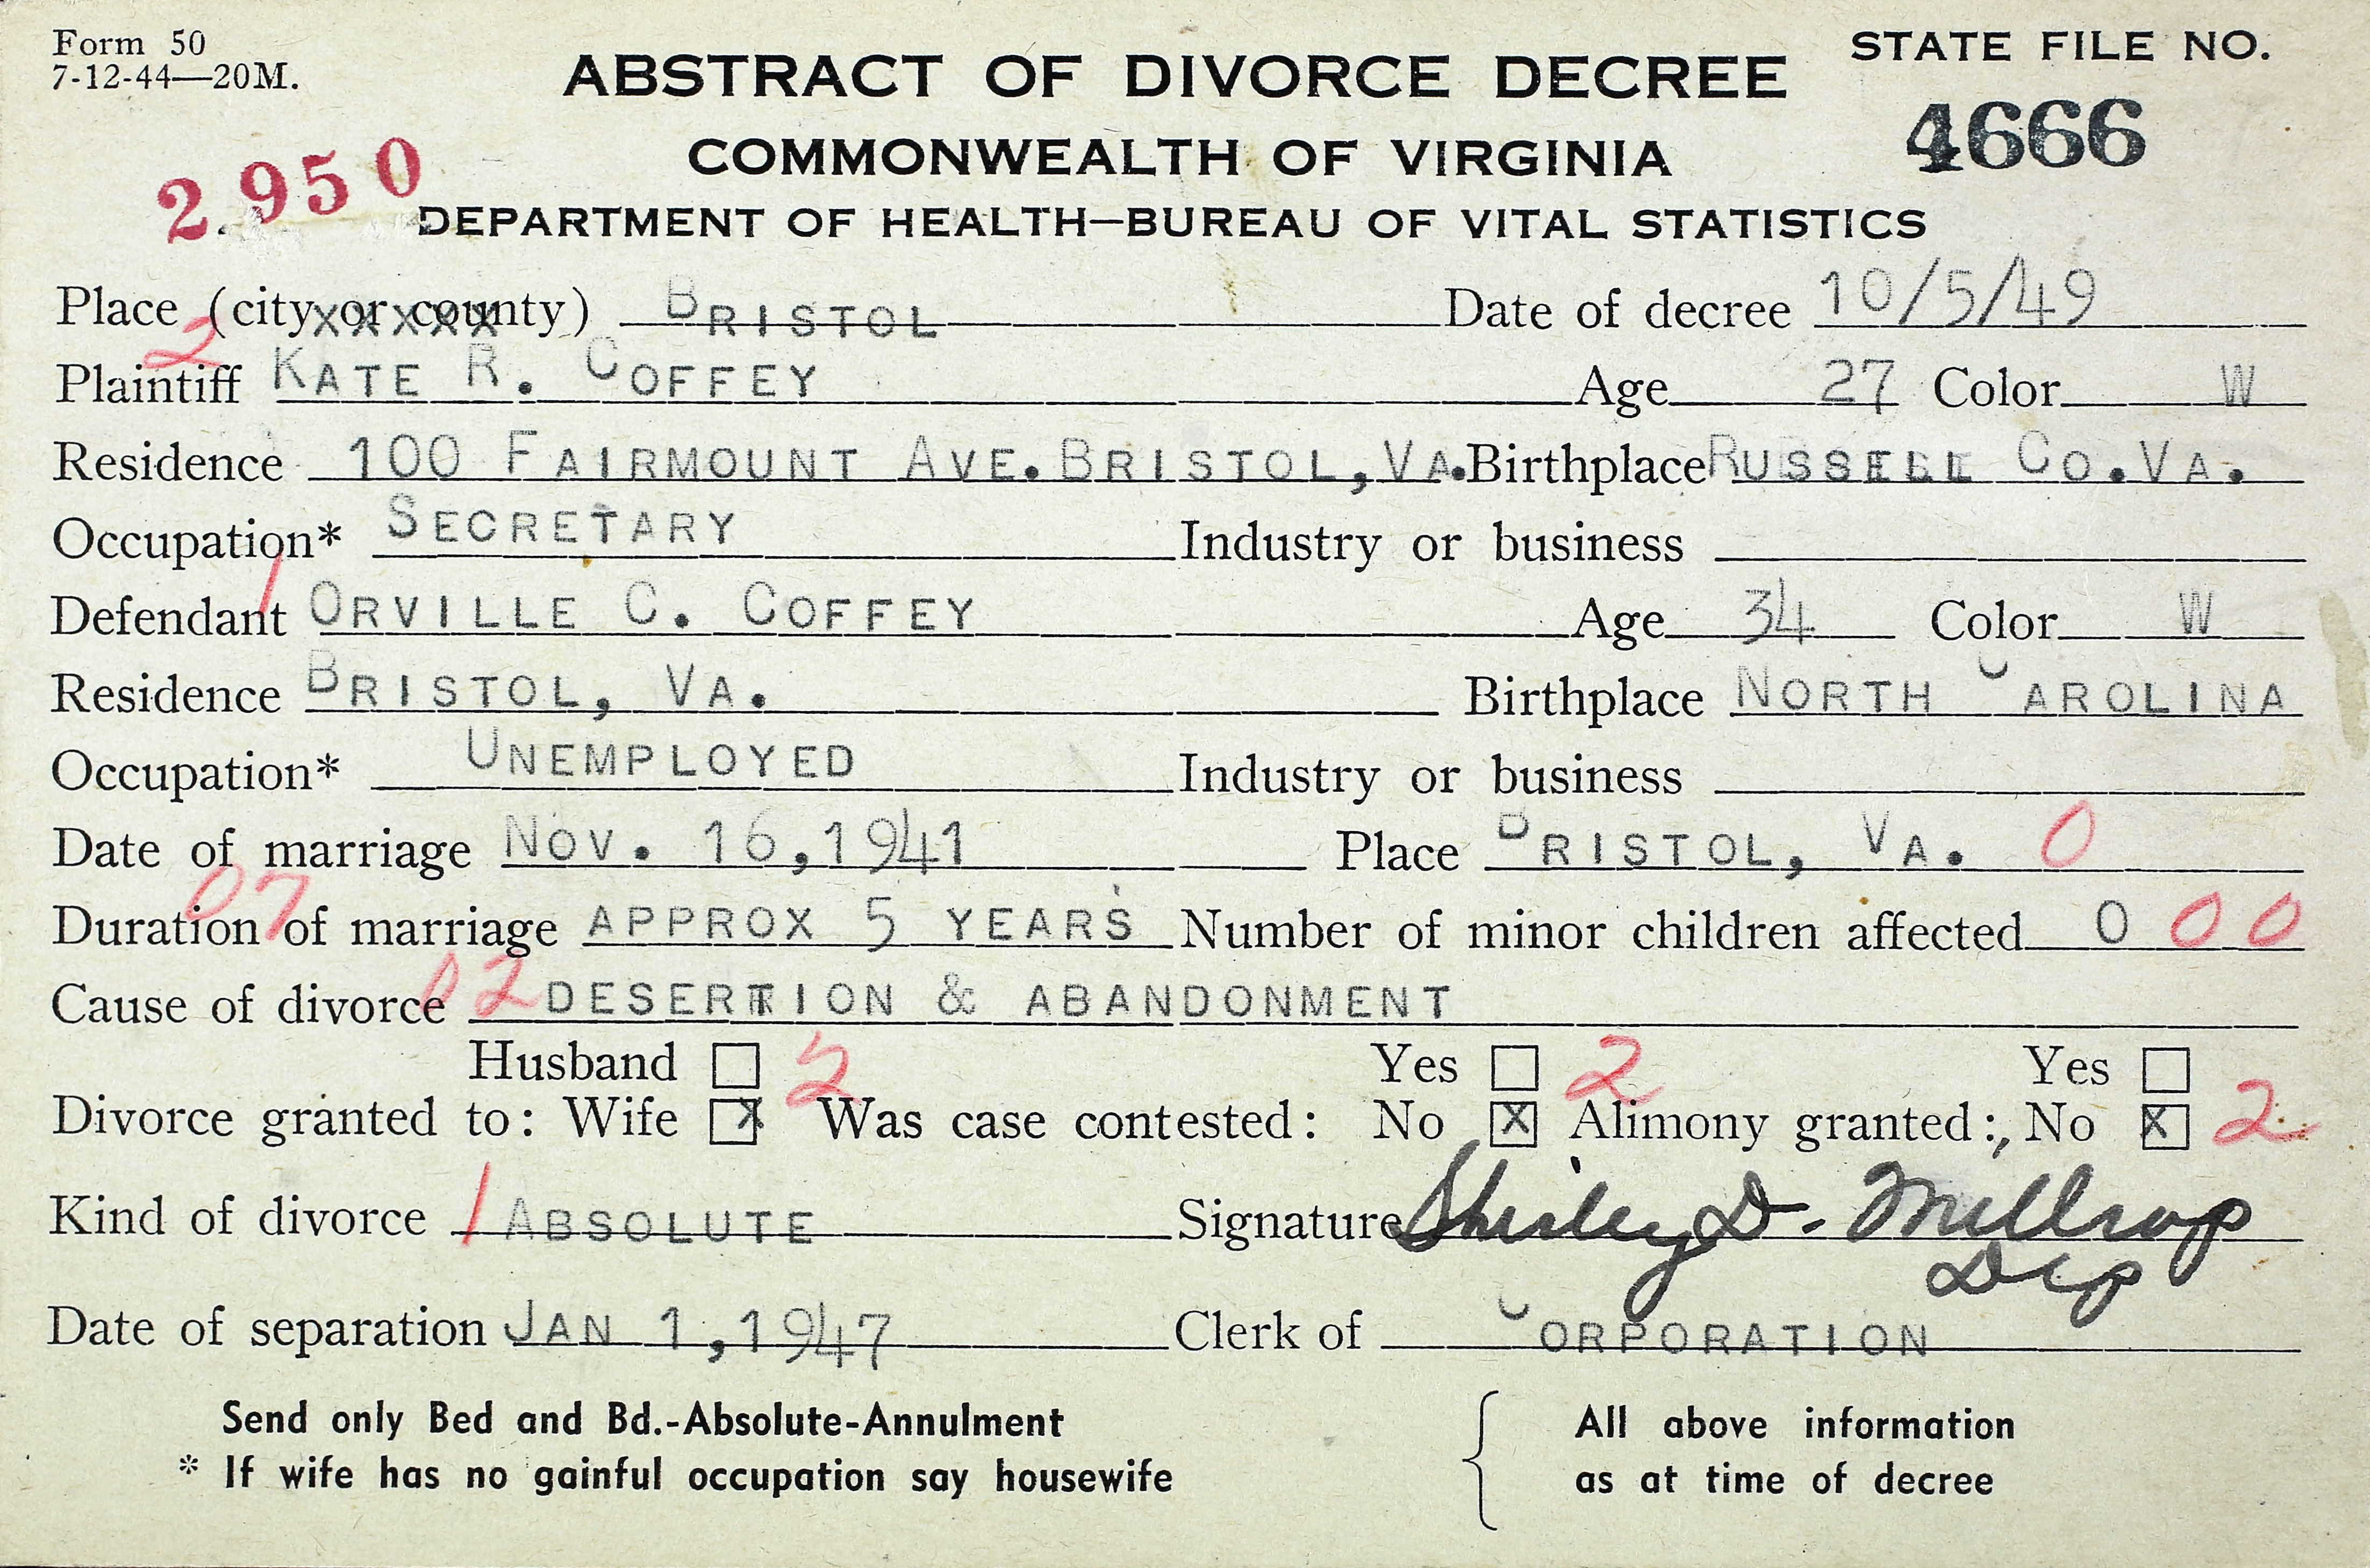 Form 50
7-12-44—20M.
ABSTRACT OF DIVORCE DECREE
STATE FILE NO.
4666
COMMONWEALTH OF VIRGINIA
2 950
DEPARTMENT OF HEALTH—BUREAU OF VITAL STATISTICS
Place (city xxxxx or county) BRISTOL Date of decree 10/5/49
2
Plaintiff KATE R. COFFEY Age 27 Color W
Residence 100 FAIRMOUNT AVE. BRISTOL, VA. Birthplace RUSSELL CO. VA.
Occupation* SECRETARY Industry or business
1
Defendant ORVILLE C. COFFEY Age 34 Color W
Residence BRISTOL, VA. Birthplace NORTH CAROLINA
Occupation* UNEMPLOYED Industry or business
Date of marriage NOV. 16, 1941 Place BRISTOL, VA. 0
07
Duration of marriage APPROX 5 YEARS Number of minor children affected 0 0 0
Cause of divorce 02 DESERTION & ABANDONMENT
Husband ☐ 2 Yes ☐ 2 Yes ☐
Divorce granted to: Wife ☒ Was case contested: No ☒ Alimony granted: No ☒ 2
Kind of divorce 1 ABSOLUTE Signature Shirley D. Millrop
Dep
Date of separation JAN 1, 1947 Clerk of CORPORATION
Send only Bed and Bd.-Absolute-Annulment { All above information
* If wife has no gainful occupation say housewife as at time of decree